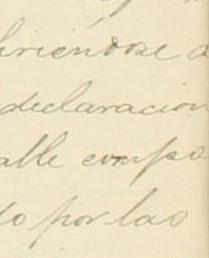 hriendose a
declaracion
alle compa
do por las